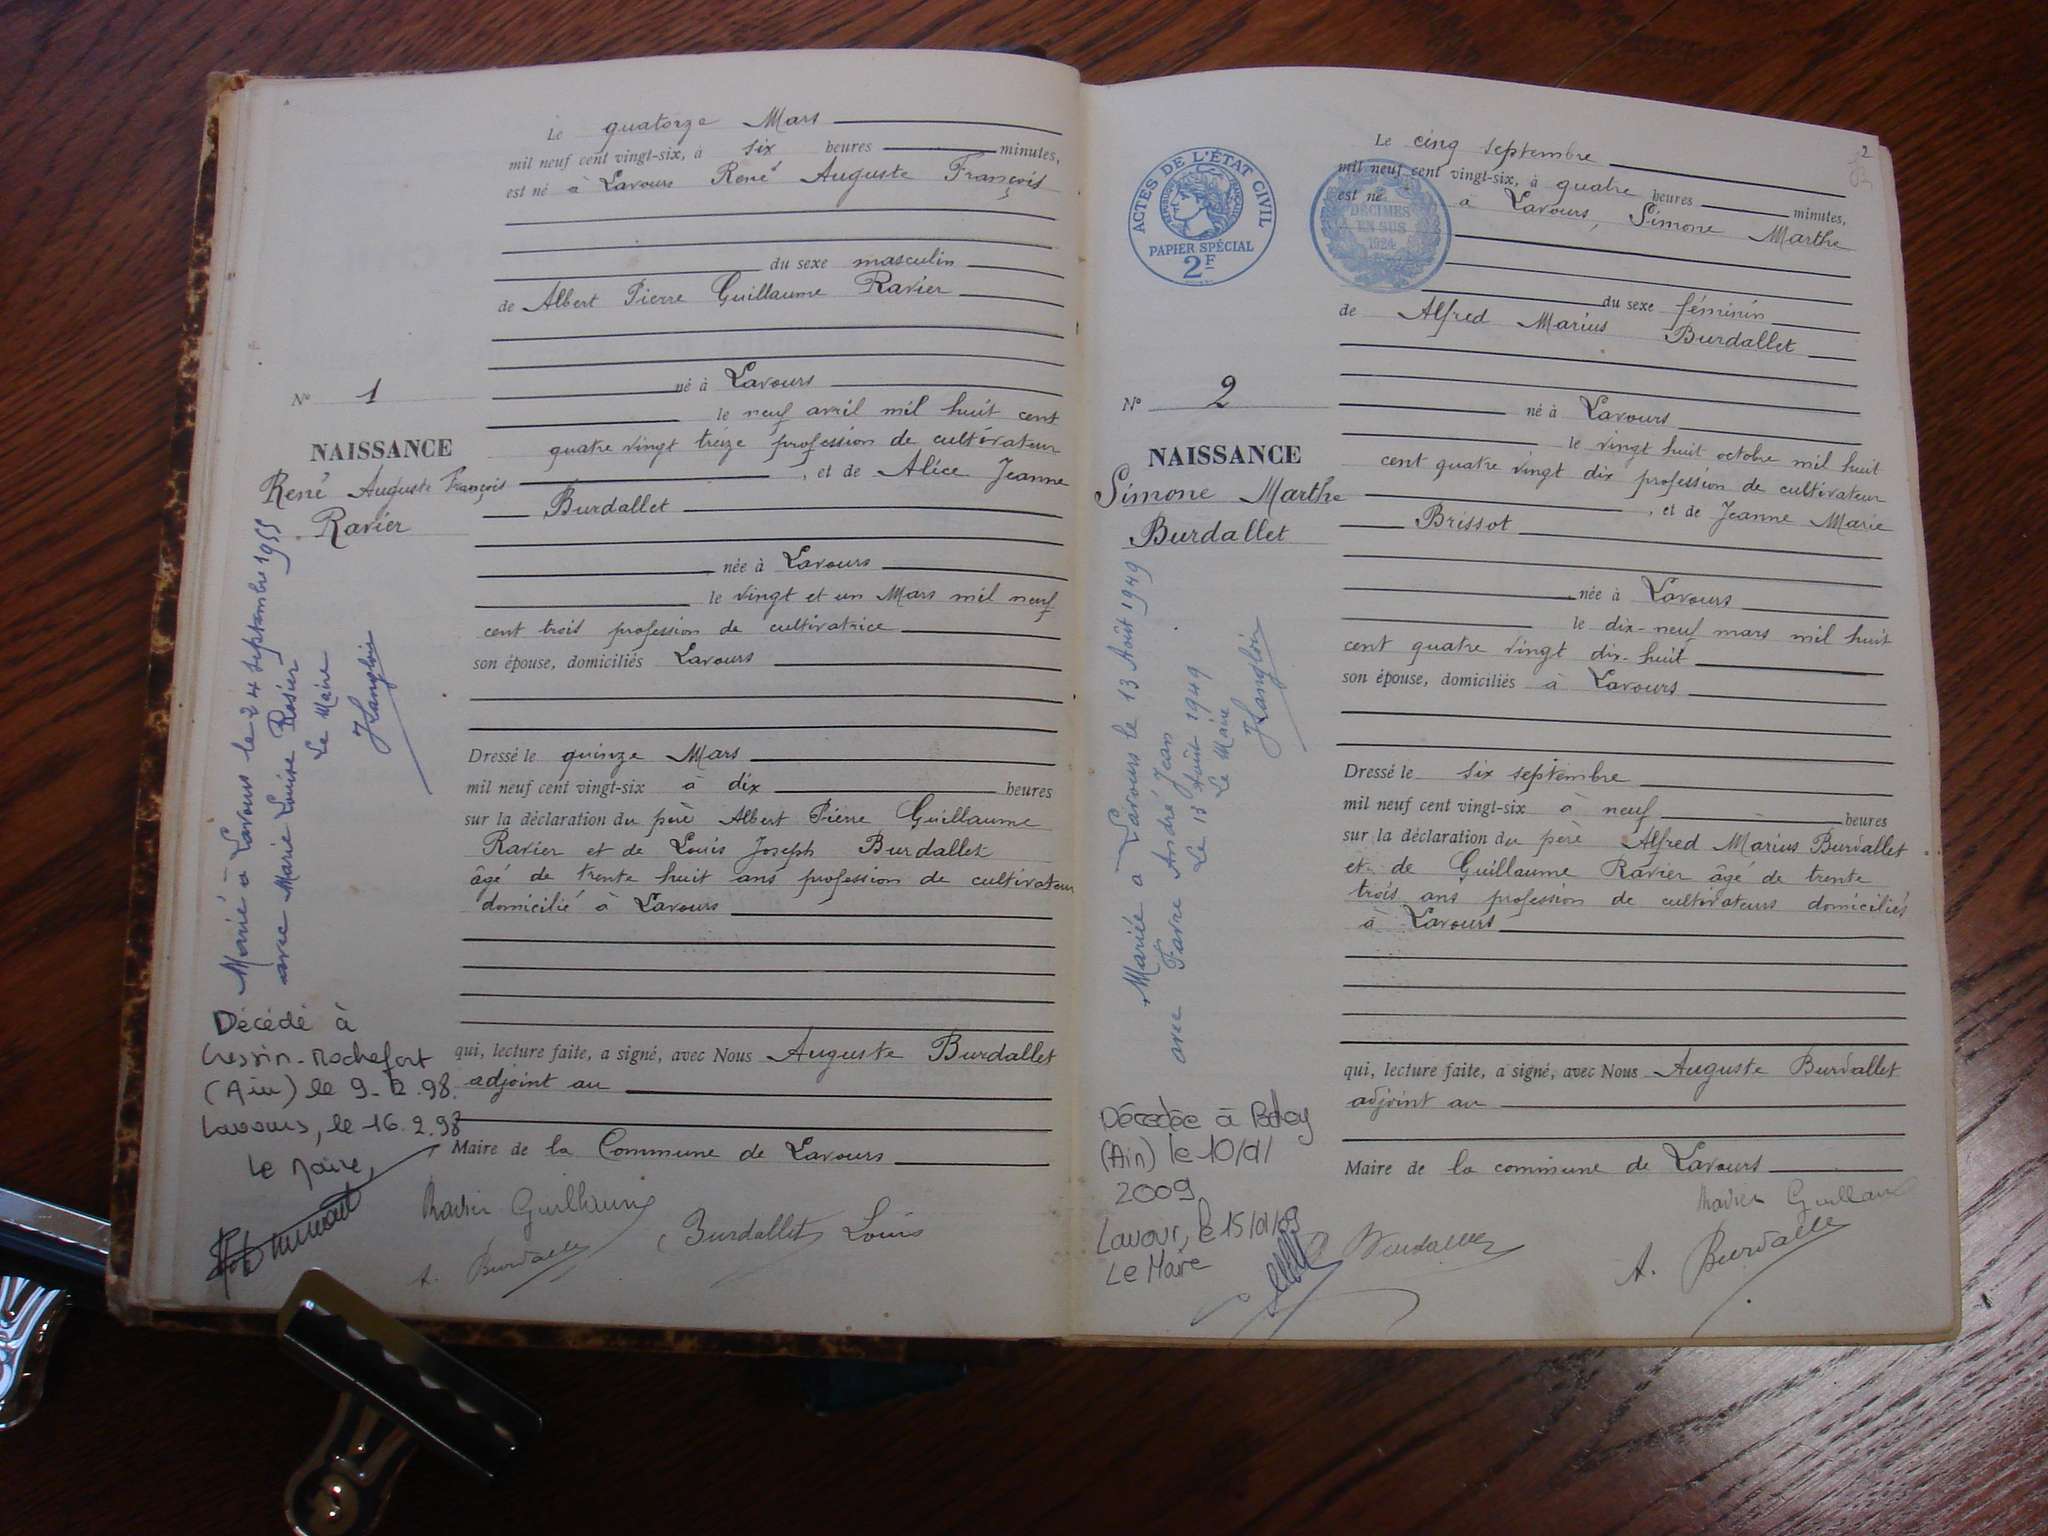 Le quatorze Mars
mil neuf cent vingt-six, à six heures minutes,
est né à Lavours René Auguste François
du sexe masculin
de Albert Pierre Guillaume Ravier
né à Lavours
le neuf avril mil huit cent
quatre vingt treize profession de cultivateur
, et de Alice Jeanne
Burdallet
née à Lavours
le vingt et un Mars mil neuf
cent trois profession de cultivatrice
son épouse, domiciliés Lavours
Dressé le quinze Mars
mil neuf cent vingt-six à dix heures
sur la déclaration du père Albert Pierre Guillaume
Ravier et de Louis Joseph Burdallet
âgé de trente huit ans profession de cultivateur
domicilié à Lavours
qui, lecture faite, a signé, avec Nous Auguste Burdallet
adjoint au
Maire de la Commune de Lavours
Ravier Guillaume
Burdallet Louis
A. Burdallet
N° 1
NAISSANCE
René Auguste François
Ravier
Marié à Lavours le 24 Septembre 1955
avec Marie Louise Rosier
Le Maire
JLanglois
Décédé à
Cressin-Rochefort
(Ain) le 9.2.98.
Lavours, le 16.2.98
Le Maire,
2
Le cinq septembre
mil neuf cent vingt-six, à quatre heures minutes,
est né à Lavours, Simone Marthe
du sexe féminin
de Alfred Marius Burdallet
né à Lavours
le vingt huit octobre mil huit
cent quatre vingt dix profession de cultivateur
, et de Jeanne Marie
Brissot
née à Lavours
le dix-neuf mars mil huit
cent quatre vingt dix-huit
son épouse, domiciliés à Lavours
Dressé le six septembre
mil neuf cent vingt-six à neuf heures
sur la déclaration du père Alfred Marius Burdallet
et de Guillaume Ravier âgé de trente
trois ans profession de cultivateurs domiciliés
à Lavours
qui, lecture faite, a signé, avec Nous Auguste Burdallet
adjoint au
Maire de la commune de Lavours
Ravier Guillaume
A. Burdallet
ACTES DE L'ÉTAT CIVIL
PAPIER SPÉCIAL
2F
DÉCIMES
EN SUS
1924
N° 2
NAISSANCE
Simone Marthe
Burdallet
Mariée à Lavours le 13 Août 1949
avec Favre André Jean
Le 13 Août 1949
Le Maire
JLanglois
Décédée à Belley
(Ain) le 10/01/
2009
Lavour, le 15/01/09
Le Maire